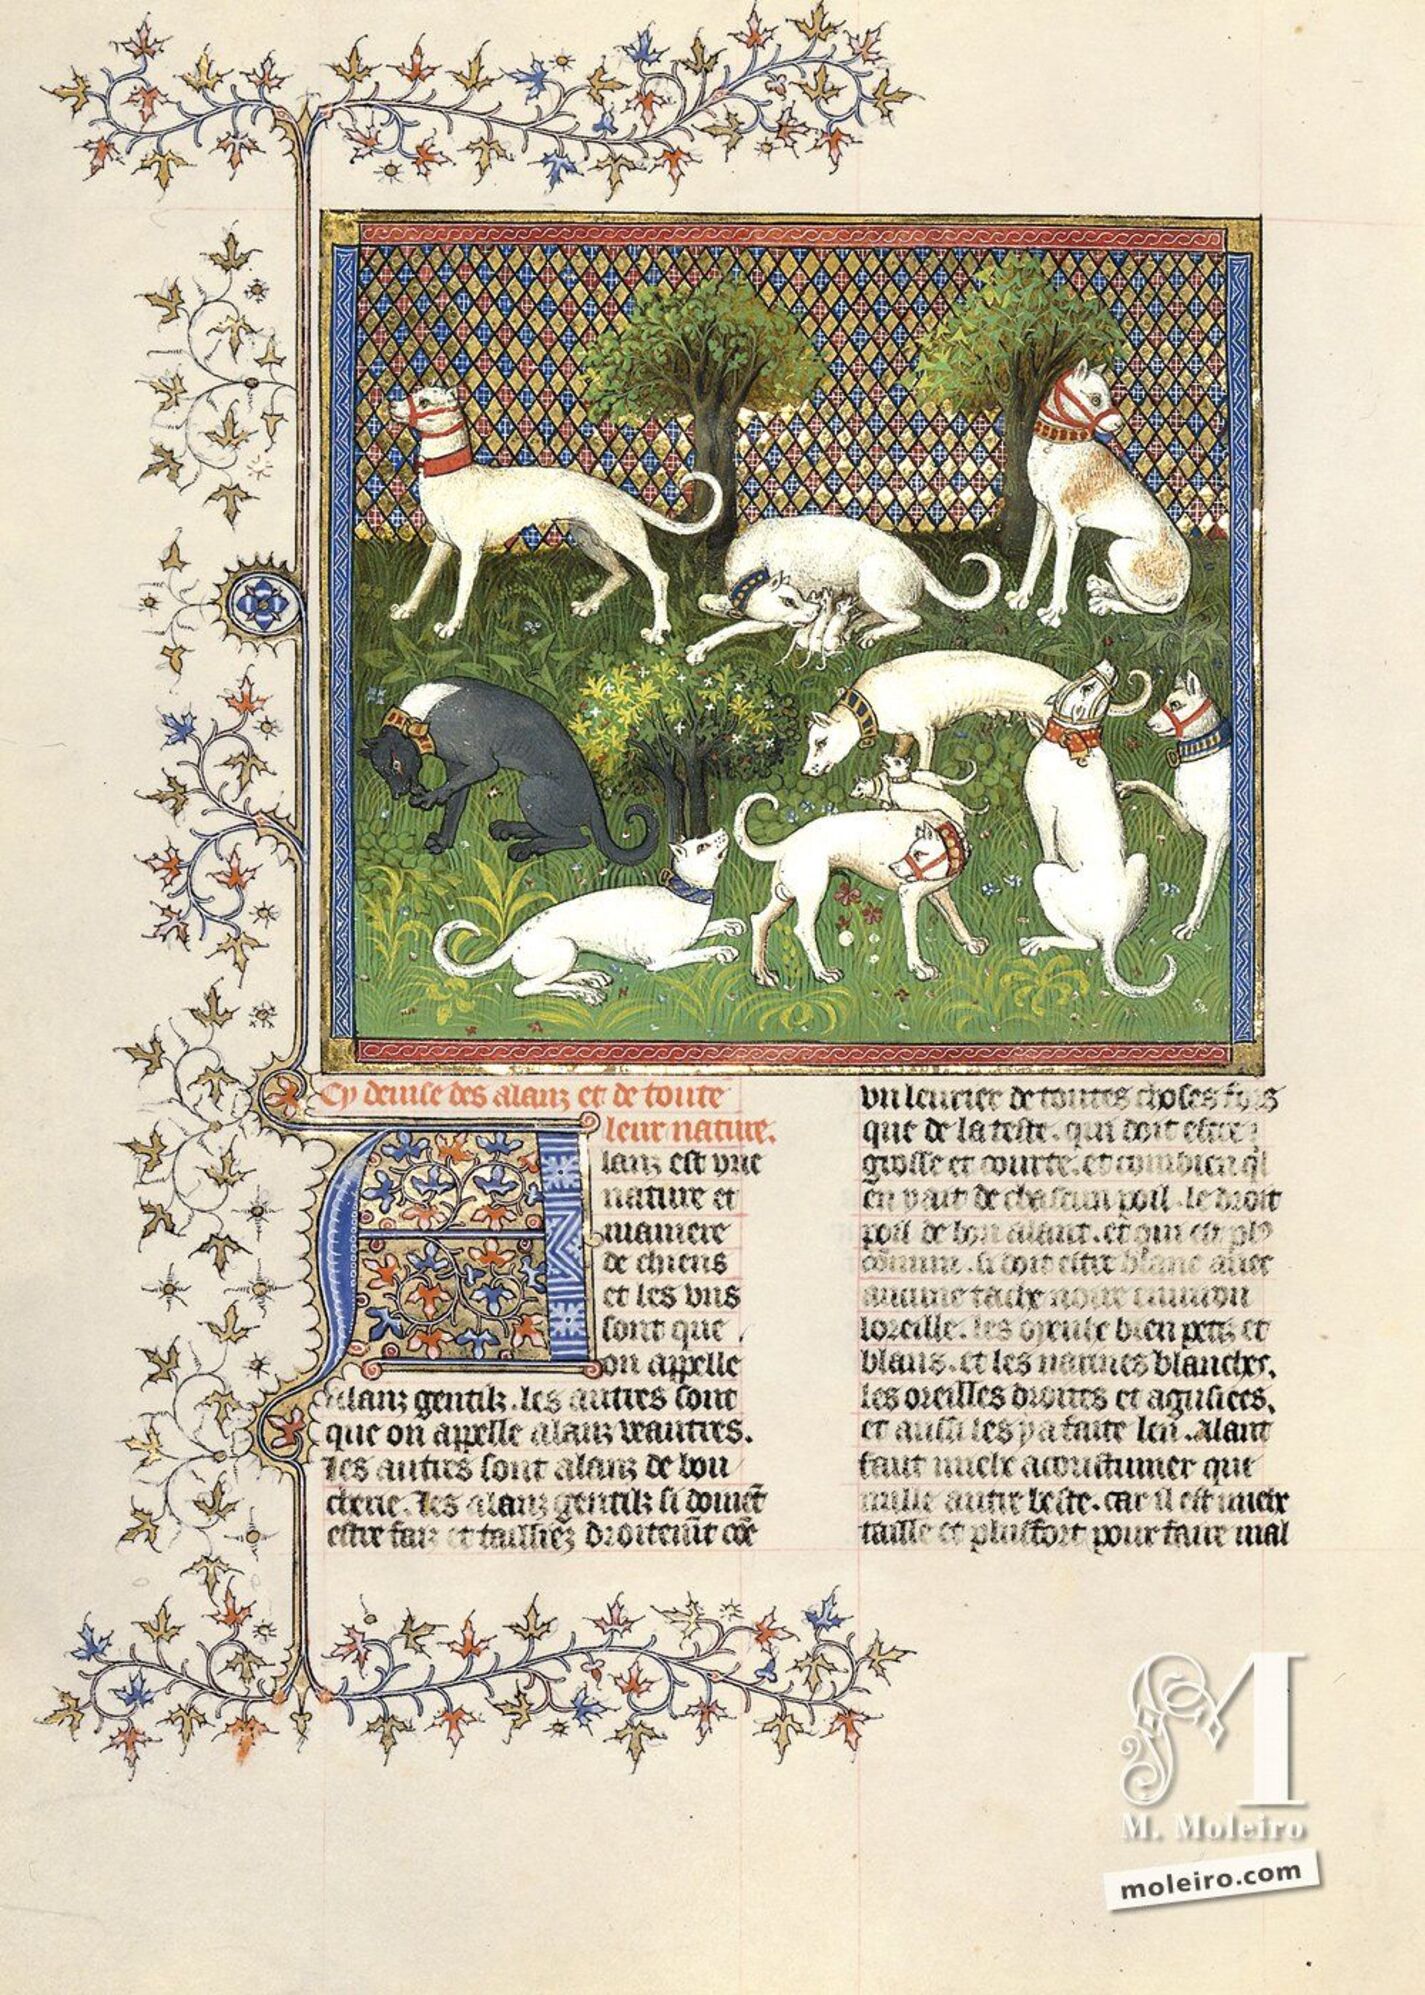 Cy deuise des alanz et de toute
leur nature.
Alanz est vne
nature et
maniere
de chiens
et les vns
sont que
on appelle
alanz gentilz. les autres sont
que on appelle alanz veautres.
Les autres sont alanz de bou
cherie. Les alanz gentilz si doiuēt
estre faiz et tailliez droitemēt cōe
vn leurier de toutes choses fors
que de la teste. qui doit estre
grosse et courte. et combien ql
en yait de chascun poil. le droit
poil de bon alant. et qui est pl9
cōmun. si doit estre blanc auec
aucune tache noire enuiron
loreille. les oyeulz bien petiz et
blans. et les narines blanches.
les oreilles droites et aguisees.
et aussi les y a faite len. Alant
faut mielx acoustumer que
nulle autre beste. car il est mielx
taille et plus fort pour faire mal
M
M. Moleiro
moleiro.com